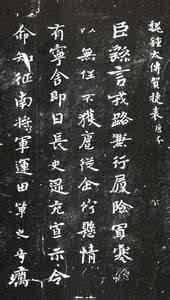 魏鍾太傅賀捷表 唐本
臣繇言戎路兼行履險冒寒臣
以無任不獲扈從企佇懸情無
有寧舍即日長史逮充宣示令
命知征南將軍運田單之奇厲